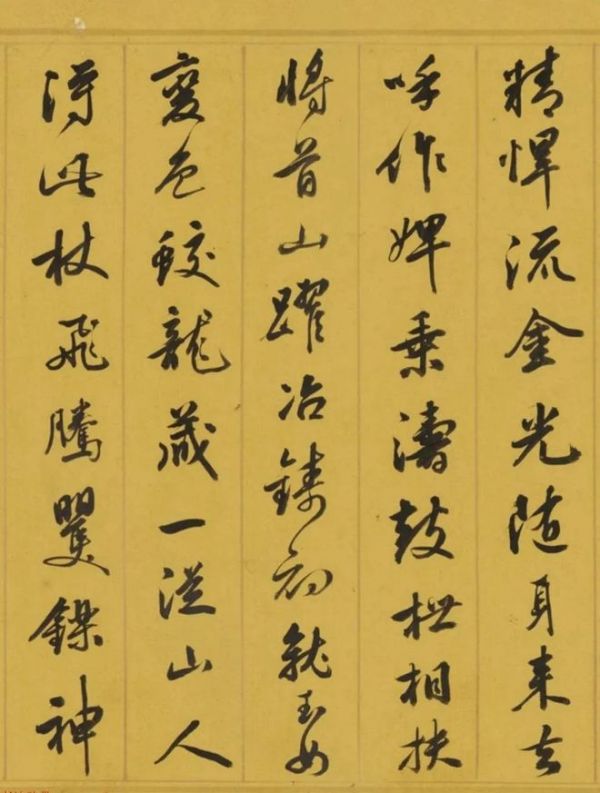 精悍流金光随身来去
呼作婢乘濤鼓枻相扶
將首山躍冶鑄初就玉女
變色蛟龍藏一從山人
得此杖飛騰矍鑠神